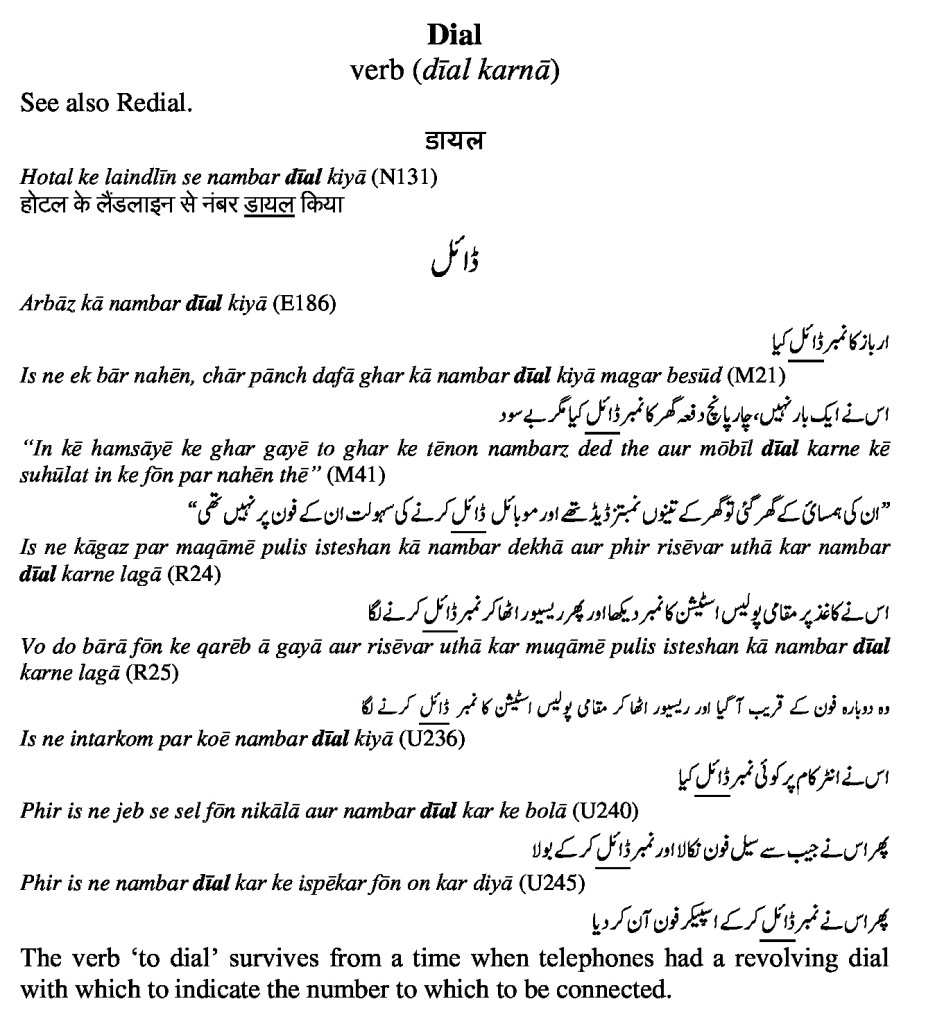 Dial
verb (dīal karnā)
See also Redial.
डायल
Hotal ke laindlīn se nambar dīal kiyā (N131)
होटल के लैंडलाइन से नंबर डायल किया
ڈائل
Arbāz kā nambar dīal kiyā (E186)
ارباز کا نمبر ڈائل کیا
Is ne ek bār nahēn, chār pānch dafā ghar kā nambar dīal kiyā magar besūd (M21)
اس نے ایک بار نہیں، چار پانچ دفعہ گھر کا نمبر ڈائل کیا مگر بے سود
“In kē hamsāyē ke ghar gayē to ghar ke tēnon nambarz ded the aur mōbīl dīal karne kē
suhūlat in ke fōn par nahēn thē” (M41)
”ان کی ہمسائی کے گھر گئی تو گھر کے تینوں نمبرز ڈیڈ تھے اور موبائل ڈائل کرنے کی سہولت ان کے فون پر نہیں تھی“
Is ne kāgaz par maqāmē pulis isteshan kā nambar dekhā aur phir risēvar uthā kar nambar
dīal karne lagā (R24)
اس نے کاغذ پر مقامی پولیس اسٹیشن کا نمبر دیکھا اور پھر ریسیور اٹھا کر نمبر ڈائل کرنے لگا
Vo do bārā fōn ke qarēb ā gayā aur risēvar uthā kar muqāmē pulis isteshan kā nambar dīal
karne lagā (R25)
وہ دوبارہ فون کے قریب آ گیا اور ریسیور اٹھا کر مقامی پولیس اسٹیشن کا نمبر ڈائل کرنے لگا
Is ne intarkom par koē nambar dīal kiyā (U236)
اس نے انٹر کام پر کوئی نمبر ڈائل کیا
Phir is ne jeb se sel fōn nikālā aur nambar dīal kar ke bolā (U240)
پھر اس نے جیب سے سیل فون نکالا اور نمبر ڈائل کر کے بولا
Phir is ne nambar dīal kar ke ispēkar fōn on kar diyā (U245)
پھر اس نے نمبر ڈائل کر کے اسپیکر فون آن کر دیا
The verb ‘to dial’ survives from a time when telephones had a revolving dial
with which to indicate the number to which to be connected.